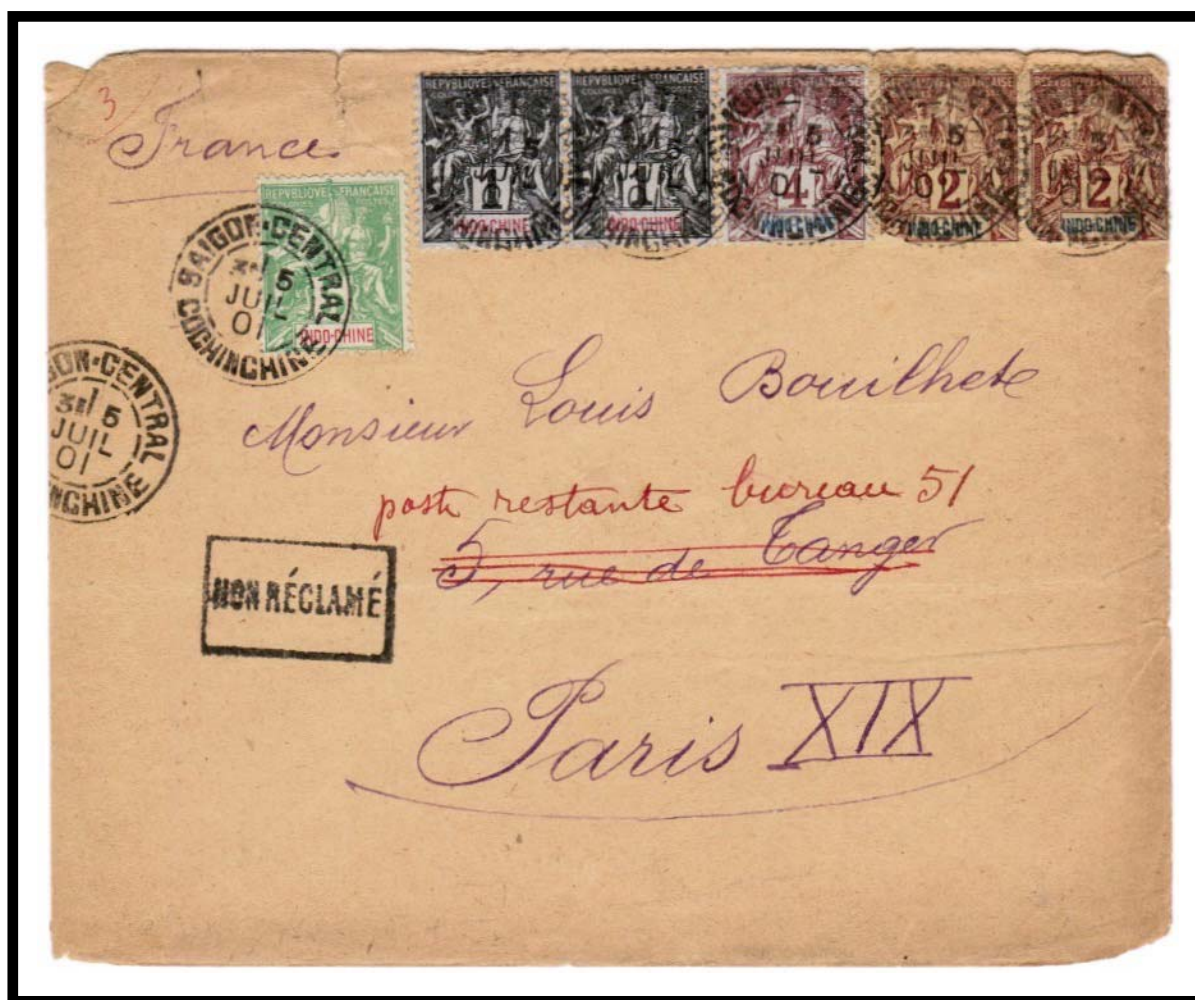 3
France
REPVBLIQVE FRANÇAISE
COLONIES POSTES
1
INDO-CHINE
REPVBLIQVE FRANÇAISE
COLONIES POSTES
1
INDO-CHINE
4
INDO-CHINE
2
INDO-CHINE
2
INDO-CHINE
REPVBLIQVE FRANÇAISE
COLONIES POSTES
INDO-CHINE
SAIGON-CENTRAL
5
JUIL
01
COCHINCHINE
GON-CENTRAL
5
JUIL
01
INCHINE
Monsieur Louis Bouilhet
poste restante bureau 51
5, rue de Tanger
NON RÉCLAMÉ
Paris XIX